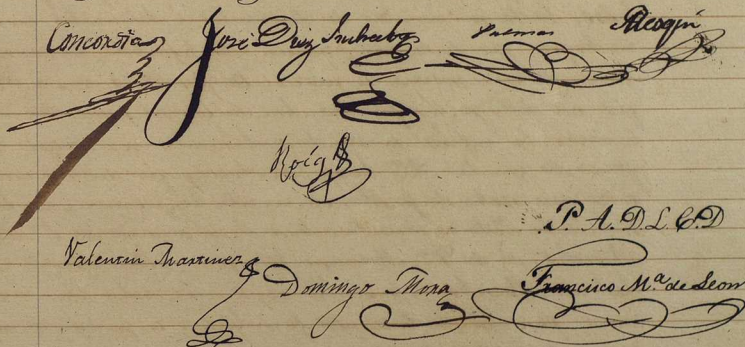 Concordia José Diaz Palmas
Roig
P. A. D L C D
Valentin Martinez Domingo Mora Francisco Mª de Leon